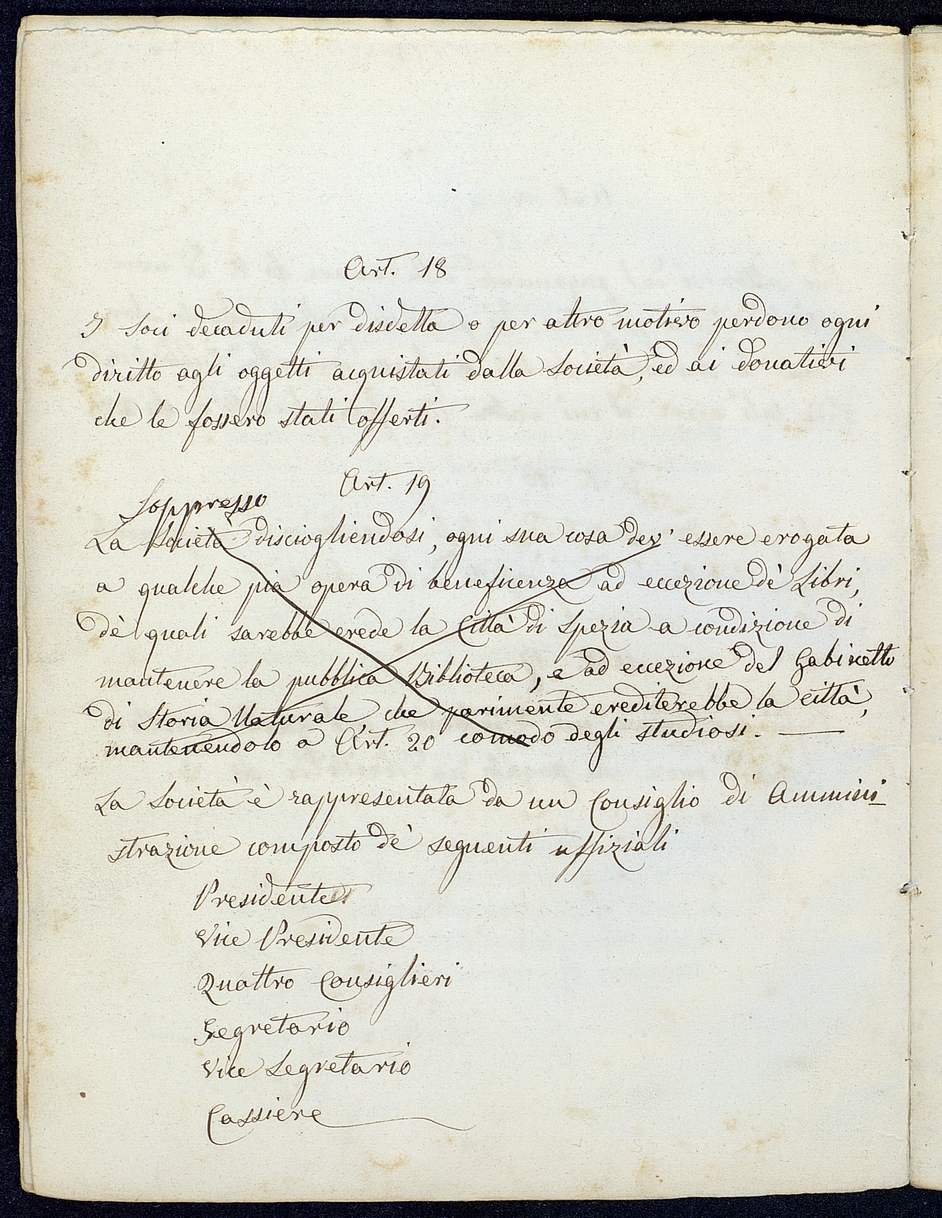 Art. 18
I Soci decaduti per disdetta o per altro motivo perdono ogni
diritto agli oggetti acquistati dalla Società, ed ai donativi
che le fossero stati offerti.
Art. 19
Soppresso
La Società disciogliendosi, ogni sua cosa dev' essere erogata
a qualche pia opera di beneficenza ad eccezione dè Libri,
dè quali sarebbe erede la Città di Spezia a condizione di
mantenere la pubblica Biblioteca, e ad eccezione del Gabinetto
di Storia Naturale che parimente erediterebbe la città,
mantenendolo a Art. 20 comodo degli studiosi.
La Società è rappresentata da un Consiglio di Ammini
strazione composto dè seguenti uffiziali
Presidente
Vice Presidente
Quattro Consiglieri
Segretario
Vice Segretario
Cassiere